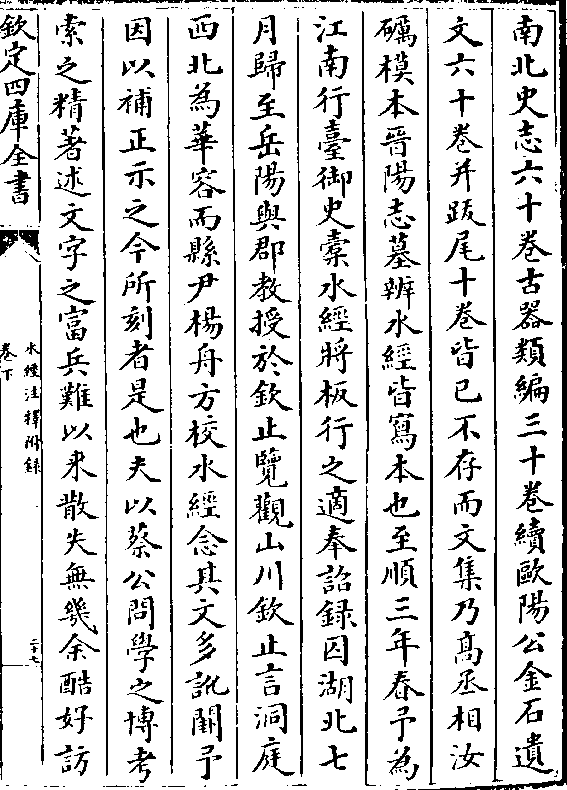 南北史志六十卷古器類編三十卷續歐陽公金石遺
文六十卷并跋尾十卷皆已不存而文集乃高丞相汝
礪模本晉陽志墓辨水經皆寫本也至順三年春予為
江南行臺御史稾水經將板行之適奉詔録囚湖北七
月歸至岳陽與郡教授於欽止覽觀山川欽止言洞庭
西北為華容而縣尹楊舟方校水經念其文多訛闕予
因以補正示之今所刻者是也夫以蔡公問學之博考
索之精著述文字之富兵難以来散失無幾余酷好訪
欽定四庫全書
水經注釋附録
卷下
二十七